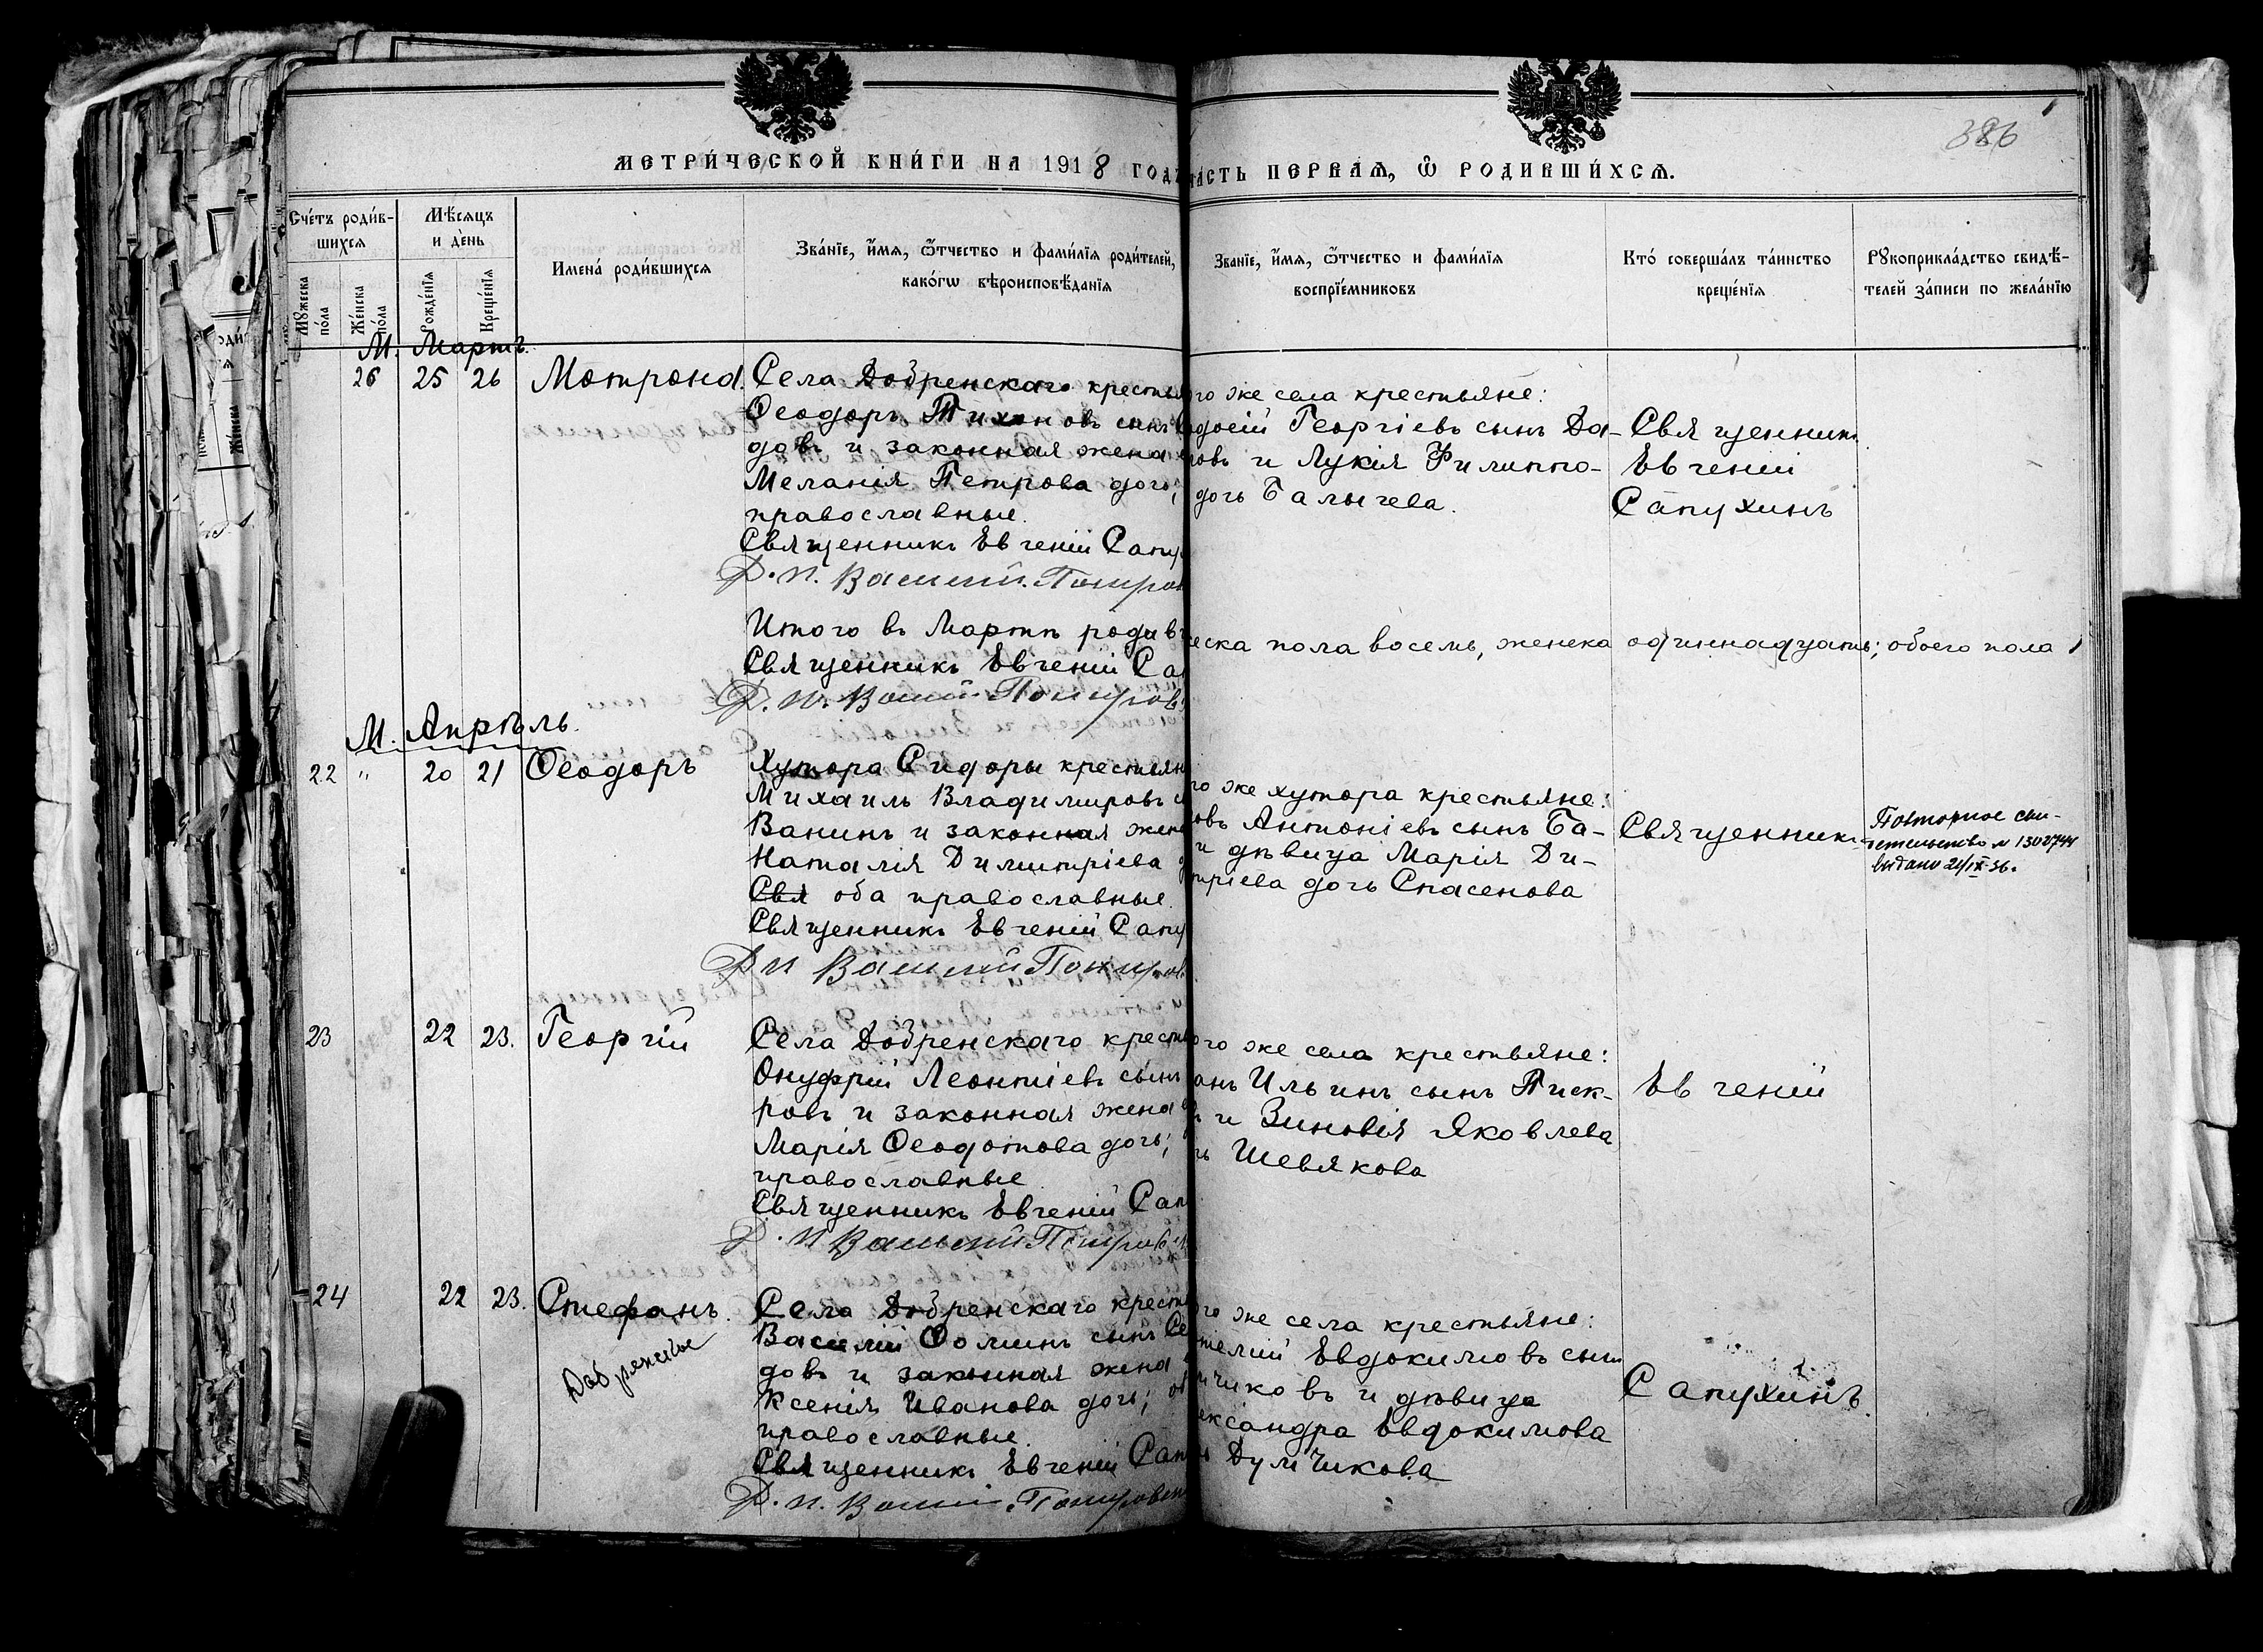 386
МЕТРИ́ЧЕСКОЙ КНИ́ГИ НА 1918 ГОД
ЧАСТЬ ПЕРВАѦ, Ѡ҆ РОДИВШИ́ХСѦ.
Сче́тъ роди́в-
шихсѧ
Мѣсѧцъ
и де́нь
Имена̀ роди́вшихсѧ
Зва́нїе, и҆́мѧ, ѻ҆́тчество и фами́лїѧ роди́телей,
како́гѡ вѣроисповѣ́данїѧ
Зва́нїе, и҆́мѧ, ѻ҆́тчество и фами́лїѧ
воспрїе́мниковъ
Кто̀ соверша́лъ та́инство
креще́нїѧ
Рꙋкоприкла́дство свидѣ́-
телей за́писи по жела́нїю
Мꙋжеска
по́ла
Же́нска
по́ла
Рожде́нїѧ
Креще́нїѧ
М. Мартъ.
26 25 26 Мотрона.
Села Добренскаго крестья
Ѳеодоръ Тихоновъ сынъ
довъ и законная жена
Меланія Петрова дочь;
православные.
Священникъ Евгеній Сапу
Василій
го же села крестьяне:
Георгіевъ сынъ Да-
ровъ и Лукія Филиппо-
дочь Балычева.
Священникъ
Евгеній
Сапухинъ
Итого въ Мартѣ родив
еска пола восемь, женска одиннадцать; обоего пола
Священникъ Евгеній Са
М. Апрѣль.
22 " 20 21 Ѳеодоръ
Хутора Сидоры крестьян
Михаилъ Владимировъ
Ванинъ и законная жена
Наталія Димитріева
Свя оба православные.
Священникъ Евгеній Сапу
Василій
го же хутора крестьяне:
овъ Антоніевъ сынъ Ба-
и дѣвица Марія Ди-
тріева дочь Спасенова
Священникъ
Повторное сви-
детельство № 1308744
выдано 21/IX-36.
23 22 23. Георгій
Села Добренскаго кресть
Онуфрій Леонтіевъ сынъ
ровъ и законная жена
Марія Ѳеодотова дочь;
православные
Священникъ Евгеній Сап
Василій
го же села крестьяне:
анъ Ильинъ сынъ Писк-
и Зиновія Яковлева
Шевякова
Евгеній
24 22 23. Стефанъ.
Добренское
Села Добренскаго кресть
Василій Ѳоминъ сынъ Се
довъ и законная жена
Ксенія Иванова дочь; об
православные.
Священникъ Евгеній Сап
го же села крестьяне:
телій Евдокимовъ сынъ
чиковъ и дѣвица
ександра Евдокимова
Думчикова
Сапухинъ.